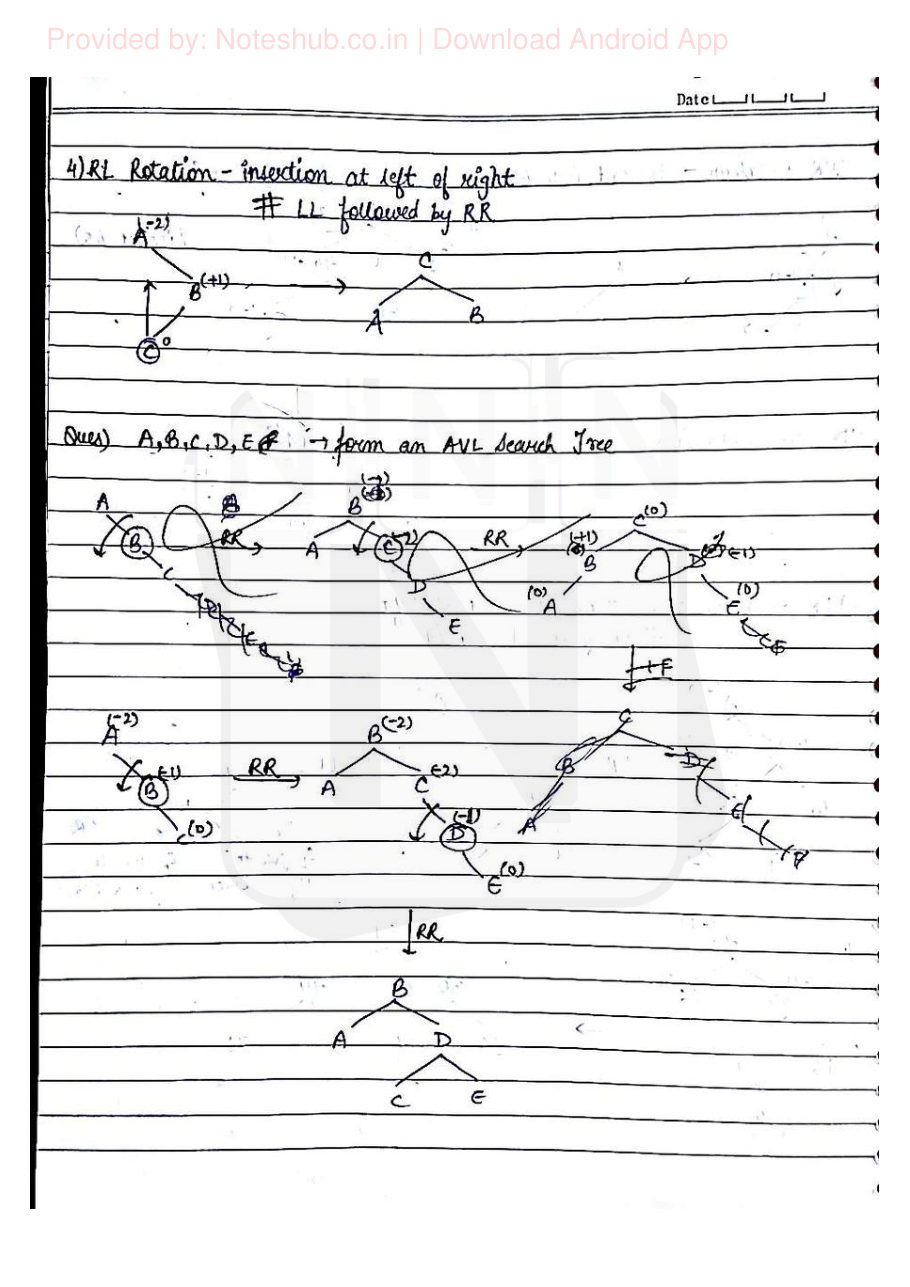 Provided by: Noteshub.co.in | Download Android App
Date
4) RL Rotation - insertion at left of right
# LL followed by RR
A(-2)
B(+1)
C0
C
A B
Ques) A, B, C, D, E → form an AVL Search Tree
A
B
C
RR
B
A C(-2)
D
E
RR
C(0)
(+1) B D (-1)
(0) A E(0)
+F
(-2)
A
B (-1)
C(0)
RR
B(-2)
A C(-2)
D (-1)
E(0)
C
B D
A E
F
RR
B
A D
C E